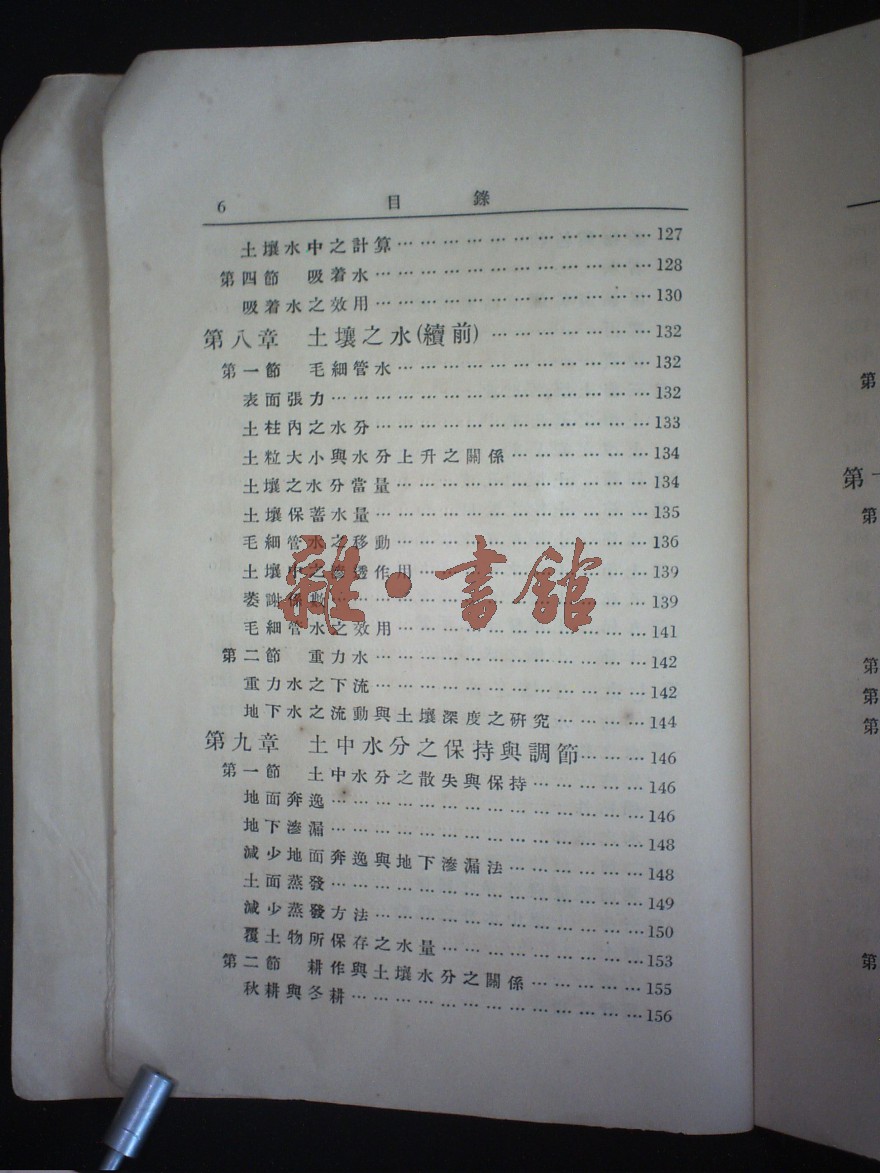 6 目錄
土壤水中之計算…………………………127
第四節 吸着水…………………………128
吸着水之效用…………………………130
第八章 土壤之水(續前)…………………132
第一節 毛細管水………………………132
表面張力………………………………132
土柱內之水分…………………………133
土粒大小與水分上升之關係……………134
土壤之水分當量………………………134
土壤保蓄水量…………………………135
毛細管水之移動………………………136
土壤中之滲透作用……………………139
萎謝係數………………………………139
毛細管水之效用………………………141
第二節 重力水…………………………142
重力水之下流…………………………142
地下水之流動與土壤深度之研究…………144
第九章 土中水分之保持與調節…………146
第一節 土中水分之散失與保持…………146
地面奔逸………………………………146
地下滲漏………………………………148
減少地面奔逸與地下滲漏法……………148
土面蒸發………………………………149
減少蒸發方法…………………………150
覆土物所保存之水量…………………153
第二節 耕作與土壤水分之關係…………155
秋耕與冬耕……………………………156
雜·書館
第
第
第
第
第
第
第